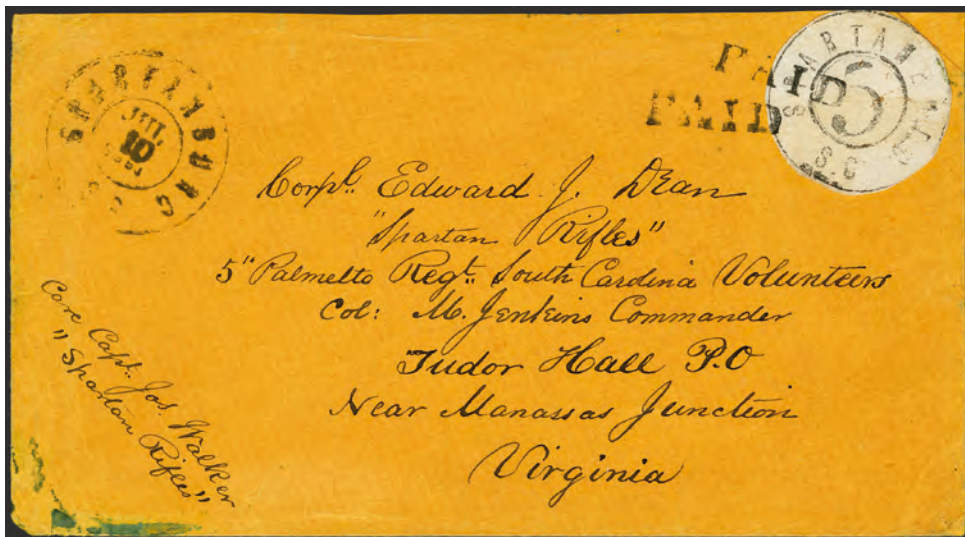 SPARTANBURG S.C.
JUL
10
PAID
PAID
SPARTANBURG
5
S.C.
Corpl. Edward J. Dean
"Spartan Rifles"
5" Palmetto Regt. South Carolina Volunteers
Col: M. Jenkins Commander
Tudor Hall P.O
Near Manassas Junction
Virginia
Care Capt. Jos. Walker
"Spartan Rifles"